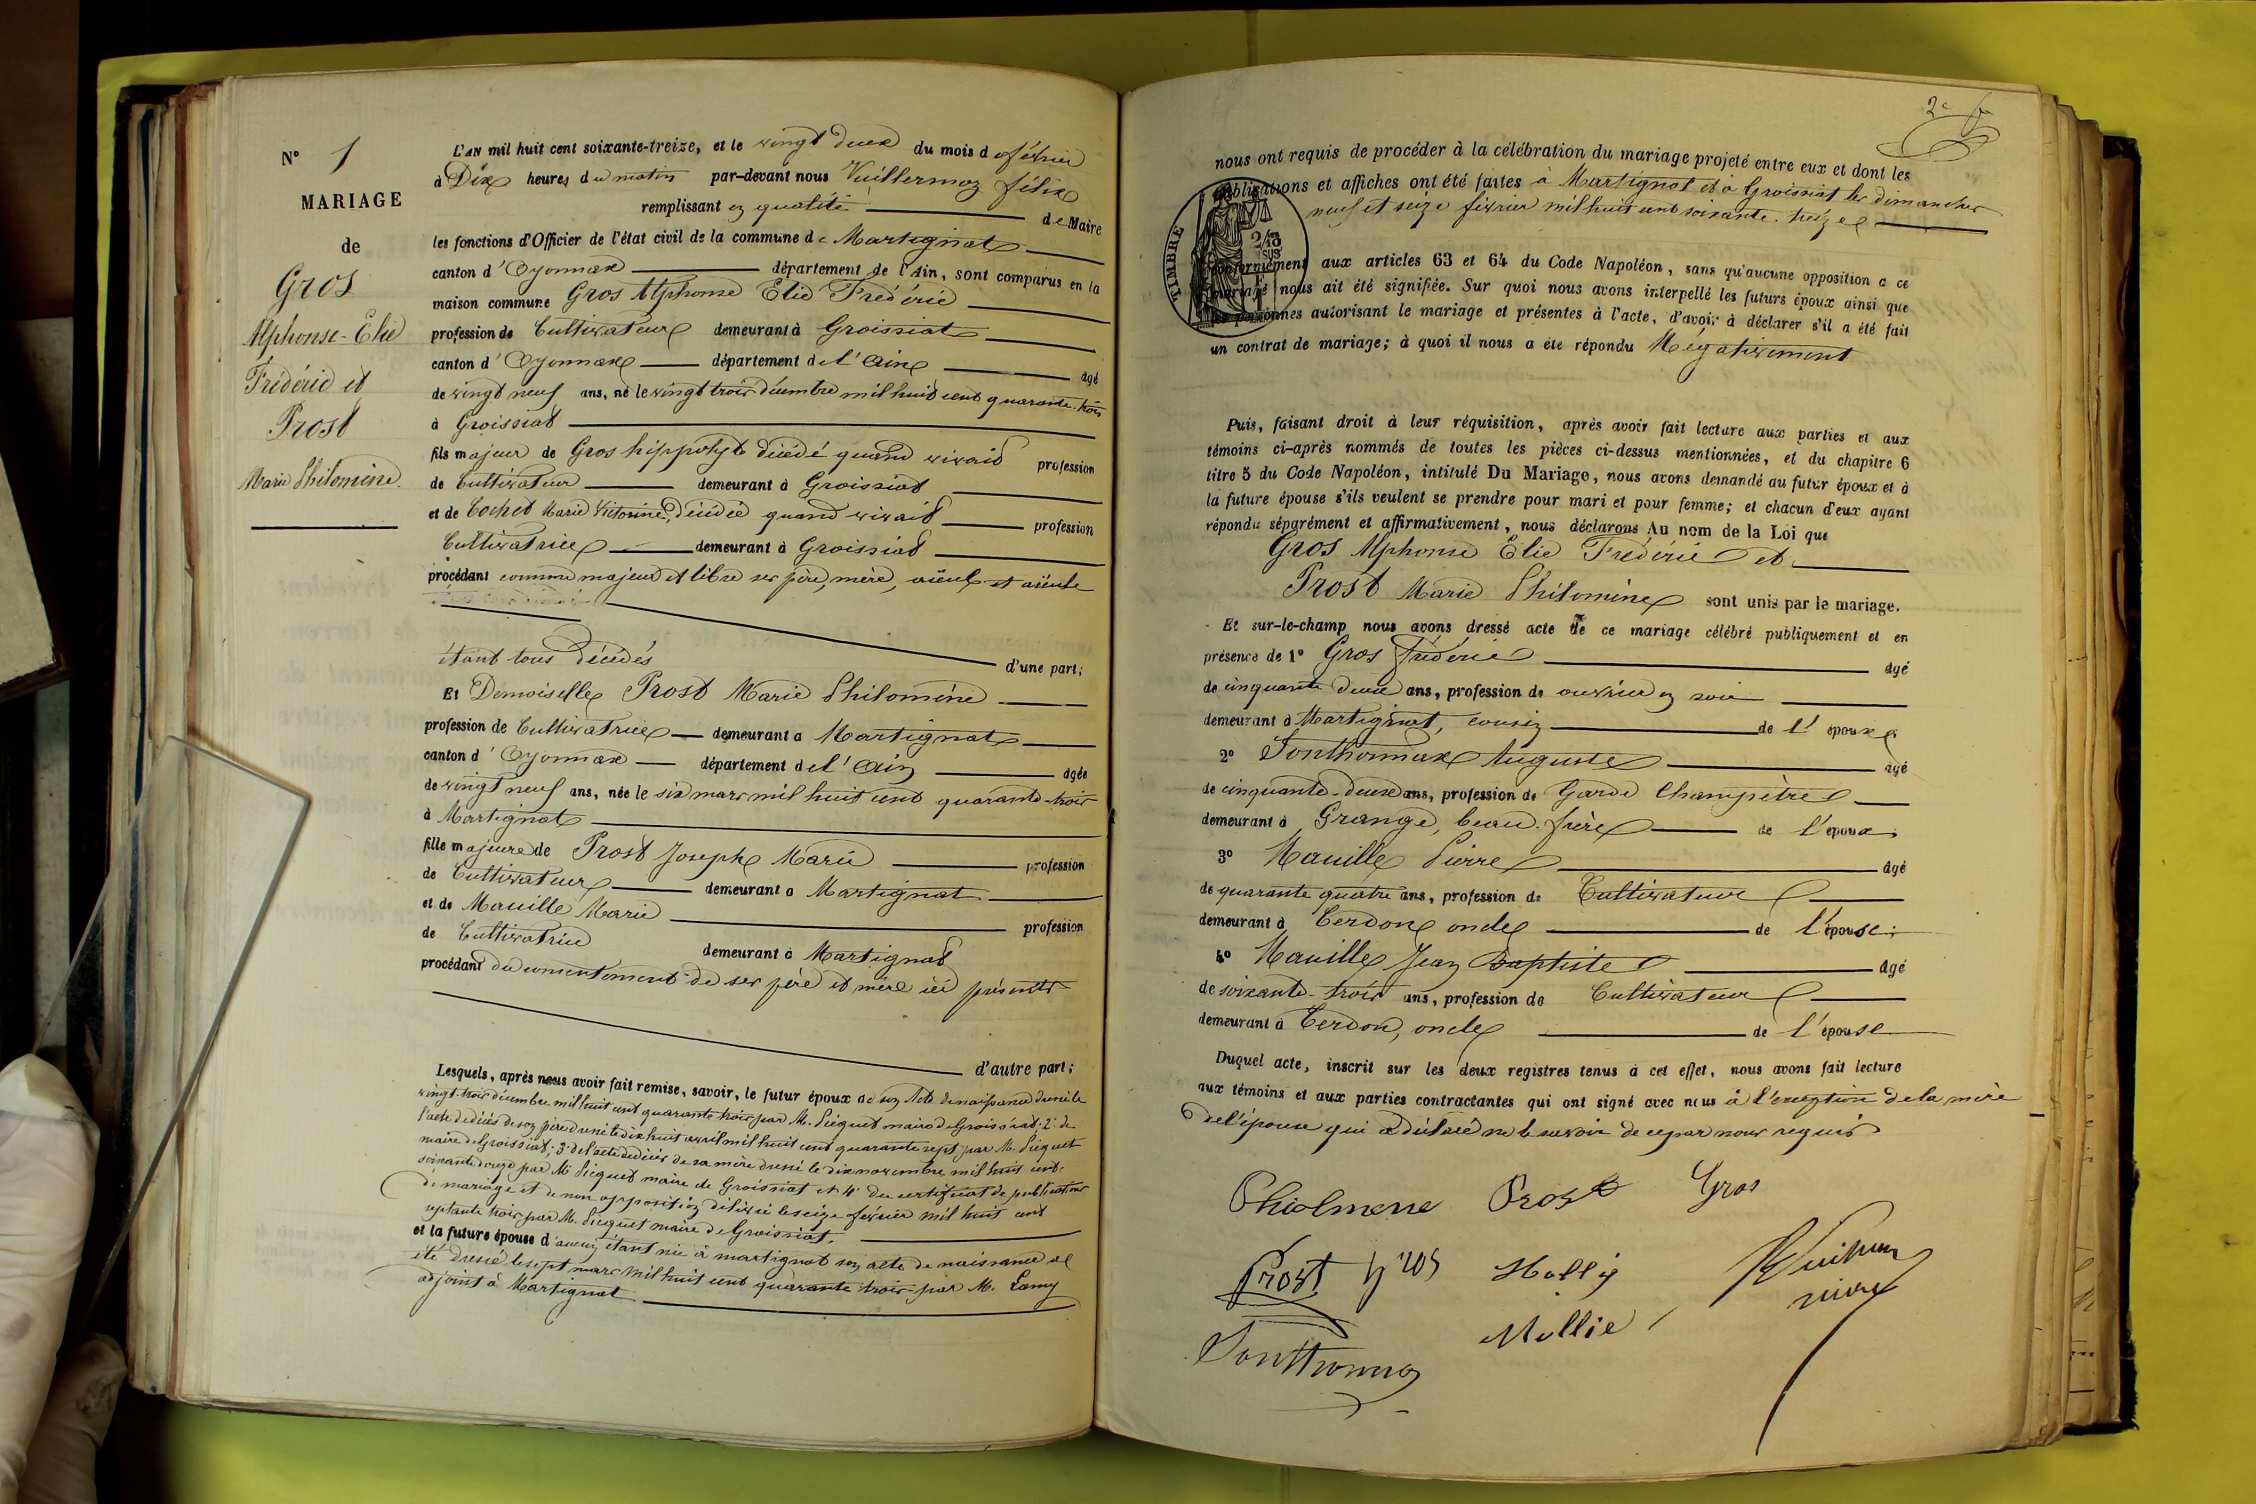 N° 1
MARIAGE
de
Gros
Alphonse-Elie
Frédéric et
Prost
Marie Philomine.
L'AN mil huit cent soixante-treize, et le vingt deux du mois de février
à Dix heures du matin par-devant nous Vuillermoz félix
remplissant en qualité de Maire
les fonctions d'Officier de l'état civil de la commune de Martignat
canton d'Oyonnax département de l'Ain, sont comparus en la
maison commune Gros Alphonse Elie Frédéric
profession de Cultivateur demeurant à Groissiat
canton d'Oyonnax département de l'Ain âgé
de vingt neuf ans, né le vingt trois décembre mil huit cent quarante-trois
à Groissiat
fils majeur de Gros hippolyte décédé quand vivait profession
de Cultivateur demeurant à Groissiat
et de Cochet Marie Victorine, décédée quand vivait profession
Cultivatrice demeurant à Groissiat
procédant comme majeur et libre ses père, mère, aïeuls et aïeule
étant tous décédés
d'une part;
Et Demoiselle Prost Marie Philomine
profession de Cultivatrice demeurant a Martignat
canton d'Oyonnax département de l'Ain âgée
de vingt neuf ans, née le six mars mil huit cent quarante-trois
à Martignat
fille majeure de Prost Joseph Marie profession
de Cultivateur demeurant a Martignat
et de Mauille Marie profession
de Cultivatrice demeurant à Martignat
procédant du consentement de ses père et mère ici présents
d'autre part;
Lesquels, après nous avoir fait remise, savoir, le futur époux de son Acte de naissance dressé le
vingt-trois décembre mil huit cent quarante trois par M. Picquet maire de Groissiat; 2° de
l'acte de décès de son père dressé le dix huit avril mil huit cent quarante sept par M. Picquet
maire de Groissiat; 3° de l'acte de décès de sa mère dressé le dix novembre mil huit cent
soixante douze par M. Picquet maire de Groissiat et 4° du certificat de publications
de mariage et de non opposition délivré le seize février mil huit cent
septante trois par M. Picquet maire de Groissiat.
et la future épouse d'aucun étant née à martignat son acte de naissance a
été dressé le sept mars mil huit cent quarante trois par M. Lamy
adjoint à Martignat
2e
nous ont requis de procéder à la célébration du mariage projeté entre eux et dont les
publications et affiches ont été faites à Martignat et à Groissiat les dimanches
neuf et seize février mil huit cent soixante-treize
TIMBRE
conformément aux articles 63 et 64 du Code Napoléon, sans qu'aucune opposition a ce
mariage nous ait été signifiée. Sur quoi nous avons interpellé les futurs époux ainsi que
les personnes autorisant le mariage et présentes à l'acte, d'avoir à déclarer s'il a été fait
un contrat de mariage; à quoi il nous a été répondu Négativement
Puis, faisant droit à leur réquisition, après avoir fait lecture aux parties et aux
témoins ci-après nommés de toutes les pièces ci-dessus mentionnées, et du chapitre 6
titre 5 du Code Napoléon, intitulé Du Mariage, nous avons demandé au futur époux et à
la future épouse s'ils veulent se prendre pour mari et pour femme; et chacun d'eux ayant
répondu séparément et affirmativement, nous déclarons Au nom de la Loi que
Gros Alphonse Elie Frédéric et
Prost Marie Philomine sont unis par le mariage.
Et sur-le-champ nous avons dressé acte de ce mariage célébré publiquement et en
présence de 1° Gros Frédéric âgé
de cinquante deux ans, profession de ouvrier en soie
demeurant à Martignat, cousin de l'époux
2° Tonthonnax Auguste âgé
de cinquante-deux ans, profession de Garde Champêtre
demeurant à Grange, beau-frère de l'époux;
3° Mauille Pierre âgé
de quarante quatre ans, profession de Cultivateur
demeurant à Cerdon oncle de l'épouse;
4° Mauille Jean Baptiste âgé
de soixante-trois ans, profession de Cultivateur
demeurant à Cerdon, oncle de l'épouse
Duquel acte, inscrit sur les deux registres tenus à cet effet, nous avons fait lecture
aux témoins et aux parties contractantes qui ont signé avec nous à l'exception de la mère
de l'épouse qui a déclaré ne le savoir de ce par nous requis
Prost Gros
Prost gros
Mollie